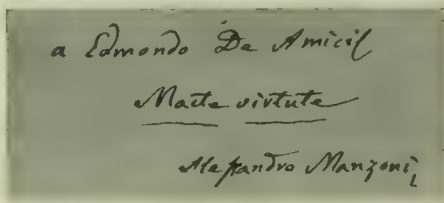 a Edmondo De Amicis
Macte virtute
Alessandro Manzoni